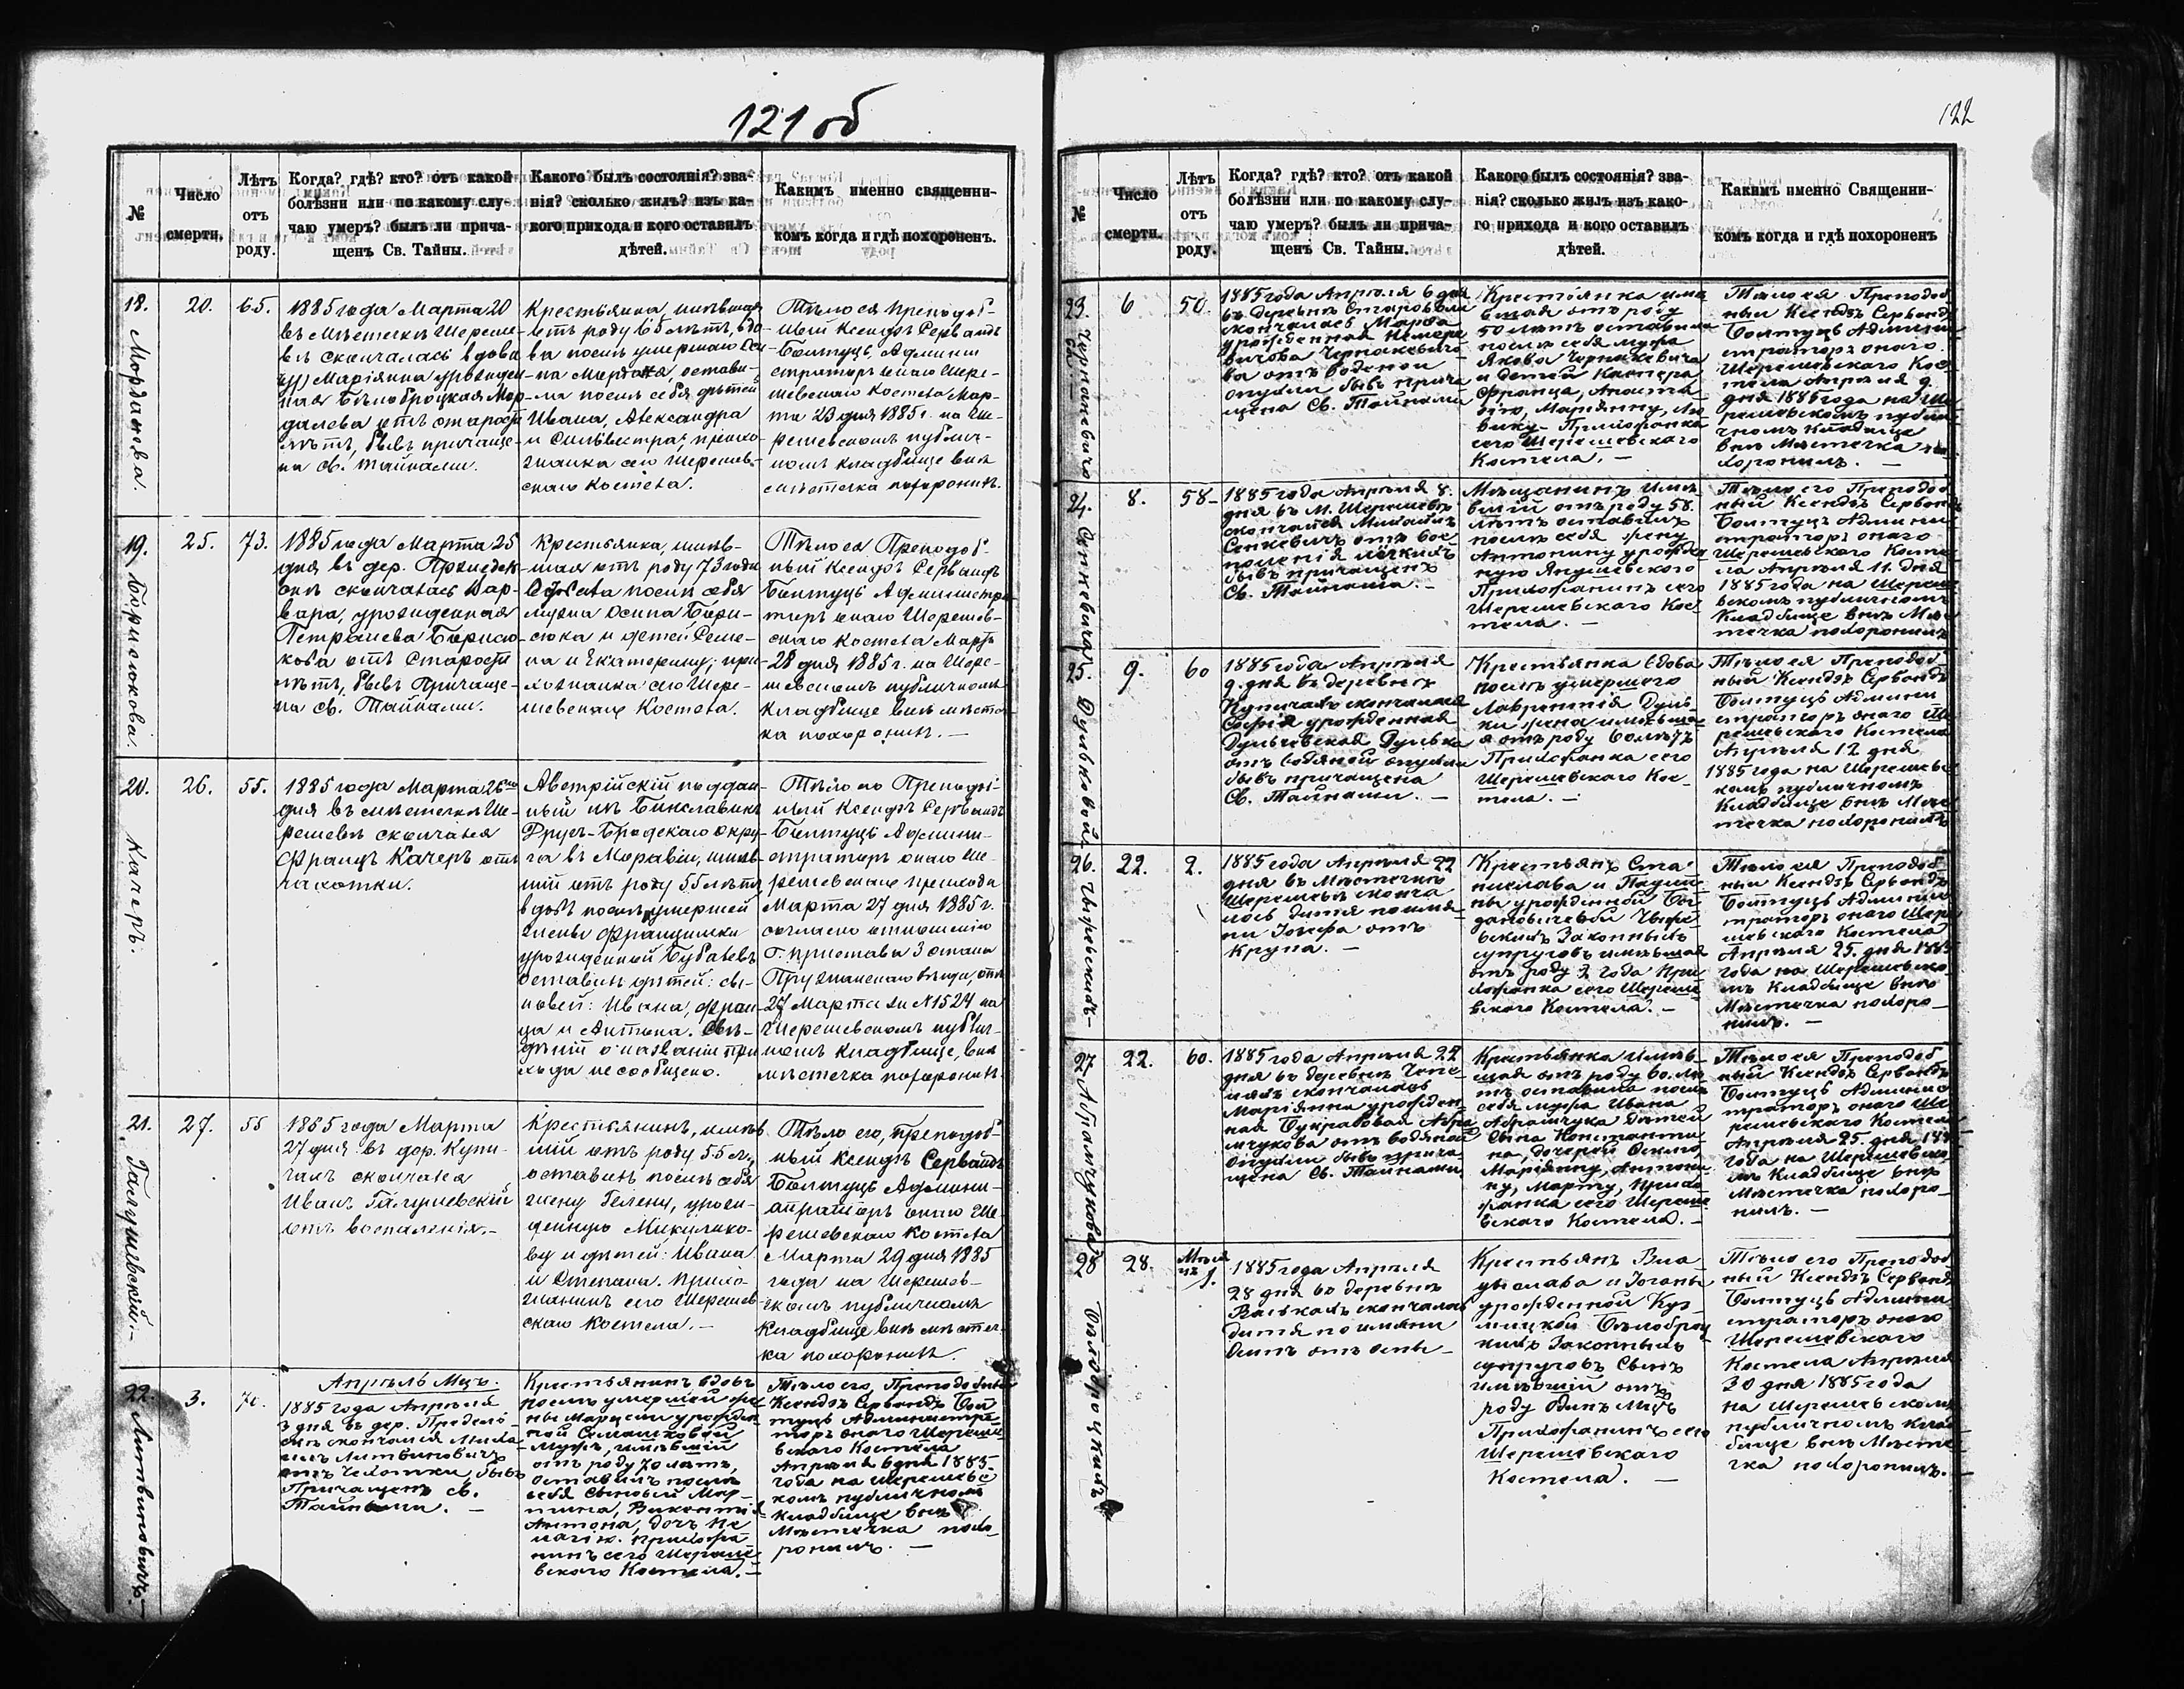 121 об
№
Число
смерти.
Лѣтъ
отъ
роду.
Когда? гдѣ? кто? отъ какой
болѣзни или по какому слу-
чаю умеръ? былъ ли прича-
щенъ Св. Тайны.
Какого былъ состоянія? зва-
нія? сколько жилъ? изъ ка-
кого прихода и кого оставилъ
дѣтей.
Какимъ именно священни-
комъ когда и гдѣ похороненъ.
18.
20.
65.
1885 года Марта 20
въ мѣстечкѣ Шереше-
вѣ скончалась вдова
Маріянна урожден-
ная Бѣлоброцкая Мор-
далева отъ старости
лѣтъ, бывъ причаще-
на св. Тайнами.
Крестьянка, имѣвшая
отъ роду 65 лѣтъ, вдо-
ва послѣ умершаго
остави-
ла послѣ себя дѣтей
Ивана, Александра
и Сильвестра; прихо-
жанка сего Шерешев-
скаго Костела.
Тѣло ея Преподоб-
ный Ксендзъ Сервандъ
Болтуць, Админи
страторъ онаго Шере-
шевскаго Костела Мар-
та 23 дня 1885 г. на Ше-
решевскомъ публич-
номъ кладбищѣ внѣ
мѣстечка похоронилъ.
19.
Борисюкова.
25.
73.
1885 года Марта 25
дня въ дер.
скончалась Вар-
вара, урожденная
Петрашева Борисю-
кова отъ Старости
лѣтъ, бывъ Причаще-
на св. Тайнами.
Крестьянка, имѣв-
шая отъ роду 73 года
послѣ себя
мужа Осипа Бори-
сюка и детей
на и Екатерину; при-
хожанка сего Шере-
шевскаго Костела.
Тѣло ея Преподоб-
ный Ксендзъ Сервандъ
Болтуць Администра-
торъ онаго Шерешев-
скаго Костела Марта
28 дня 1885 г. на Шере-
шевскомъ публичномъ
кладбищѣ внѣ мѣстеч-
ка похоронилъ. —
20.
Качеръ.
26.
55.
1885 года Марта 26го
дня въ мѣстечкѣ Ше-
решевѣ скончался
Францъ Качеръ отъ
чахотки.
Австрійскій поддан-
ный изъ
Бродскаго Окру-
га въ Моравіи, имѣв-
шій отъ роду 55 лѣтъ
вдовъ послѣ умершей
жены Францишки
урожденной
оставилъ дѣтей: сы-
новей: Ивана, Фран-
ца и Антона. Свѣ-
дѣній о названіи при
хода не сообщено.
Тѣло его Преподоб-
ный Ксендзъ Сервандъ
Болтуць Админи-
страторъ онаго Ше-
решевскаго прихода
Марта 27 дня 1885 г.
согласно отношенію
Г. пристава 3 стана
Пружанскаго уѣзда, отъ
27 Марта за N 1524 на
Шерешевскомъ публич-
номъ кладбищѣ, внѣ
мѣстечка похоронилъ.
21.
27.
55
1885 года Марта
27 дня въ дер. Купи-
чахъ скончался
Иванъ
отъ воспаленія. —
Крестьянинъ, имѣв
шій отъ роду 55 л.,
оставилъ послѣ себя
жену Гелену, урож-
денную Микулако-
ву и дѣтей: Ивана
и Степана. Прихо-
жанинъ сего Шерешев-
скаго Костела. —
Тѣло его, преподоб-
ный Ксендзъ Сервандъ
Болтуць Админи-
страторъ онаго Ше-
решевскаго Костела
Марта 29 дня 1885
года на Шерешев-
скомъ публичномъ
Кладбищѣ внѣ мѣстеч-
ка похоронилъ.
22.
Литвиновичъ. —
3.
70.
Апрѣль Мцъ.
1885 года Апрѣля
3 дня въ дер.
скончался Миха
илъ Литвиновичъ
отъ Чахотки, бывъ
Причащенъ св.
Тайнами. —
Крестьянинъ вдовъ
послѣ умершей же
ны Марцели урожден
ной Семашковой
мужъ, имѣвшій
отъ роду 70 лѣтъ,
оставилъ послѣ
себя сыновей Мар-
тина, Викентія
Антона, дочь Пе
лагію. Прихожа
нинъ сего Шереше
вского Костела. —
Тѣло его, Преподобный
Ксендзъ Сервандъ Бол
туць Администра
торъ оного Шереше
вского Костела
Апрѣля 6 дня 1885
года на Шерешевс
комъ публичномъ
кладбищѣ внѣ
Мѣстечка похо
ронилъ. —
122
№
Число
смерти.
Лѣтъ
отъ
роду.
Когда? гдѣ? кто? отъ какой
болѣзни или по какому слу-
чаю умеръ? былъ ли прича-
щенъ Св. Тайны.
Какого былъ состоянія? зва-
нія? сколько жилъ изъ како-
го прихода и кого оставилъ
дѣтей.
Какимъ именно Священни-
комъ когда и гдѣ похороненъ
23.
6
50.
1885 года Апрѣля 6 дня
въ деревнѣ
скончалась Марфа
урожденная
ва отъ водяной
опухли бывъ прича
щена Св. Тайнами
Крестьянка имѣ
вшая отъ роду
50 лѣтъ оставила
послѣ себя мужа
Якова Чернакевича
и детей Каспера
Франца, Анаста
зію, Маріянну, Лю
вику. Прихожанка
сего Шерешевского
Костела. —
Тѣло ея Преподоб
ный Ксендзъ Сервандъ
Болтуць Админи
страторъ оного
Шерешевского Кос
тела Апрѣля 9.
дня 1885 года на Ше
решевскомъ публи
чномъ Кладбищѣ
внѣ Мѣстечка по
хоронилъ. —
24.
8.
58-
1885 года Апрѣля 8.
дня въ М. Шерешевѣ
скончался Михаилъ
Сенкевичъ отъ вос
паленія лёгкихъ
бывъ причащенъ
Св. Тайнами. —
Мѣщанинъ имѣ
вшій отъ роду 58.
лѣтъ оставилъ
послѣ себя жену
Антонину урожде
ную Янушевского
Прихожанинъ сего
Шерешевского Кос
тела. —
Тѣло его Преподоб
ный Ксендзъ Сервандъ
Болтуць Админи
страторъ оного
Шерешевского Косте
ла Апрѣля 11. дня
1885 года на Шереше
вскомъ публичномъ
Кладбищѣ внѣ Мѣс
течка похоронилъ
25.
Дулькова
9.
60
1885 года Апрѣля
9. дня въ деревнѣ
Купичахъ скончалась
Софія урожденная
Дульчевская Дулька
отъ водяной опухли
бывъ причащена
Св. Тайнами. —
Крестьянка вдова
послѣ умершего
Лаврентія Дуль-
ки жена имѣвша
я отъ роду 60 лѣтъ
Прихожанка сего
Шерешевского Кос-
тела. —
Тѣло ея Преподоб
ный Ксендзъ Сервандъ
Болтуць Админи
страторъ оного Ше
решевского Костела
Апрѣля 12 дня
1885 года на Шерешевс
комъ публичномъ
Кладбищѣ внѣ Мѣс
течка похоронилъ
26.
22.
2.
1885 года Апрѣля 22
дня въ Мѣстечкѣ
Шерешевѣ сконча
лось дитя по име
ни Іозефа отъ
Крупа. —
Крестьянъ Ста
нислава и Паули
ны урожденной Бог
дановичевой
Законныхъ
супруговъ имѣвшая
отъ роду 2 года При
хожанка сего Шереше
вского Костела. —
Тѣло ея Преподоб
ный Ксендзъ Сервандъ
Болтуць Админис
траторъ оного Шере
шевского Костела
Апрѣля 25. дня 1885
года на Шерешевско
мъ Кладбищѣ внѣ
Мѣстечка похоро
нилъ. —
27.
Абрамчукова
22.
60.
1885 года Апрѣля 22
дня въ деревнѣ
скончалась
Маріянна урожден
ная Букрабовая Абра
мчукова отъ водяной
опухли бывъ прича
щена Св. Тайнами
Крестьянка имѣв
шая отъ роду 60. лѣ
тъ оставила послѣ
себя мужа Ивана
Абрамчука Дѣтей
сына Константи
на, дочерей
Маріянну, Антони
ну, Марту, Прихо
жанка сего Шереше
вского Костела. —
Тѣло ея Преподоб
ный Ксендзъ Сервандъ
Болтуць Админис
траторъ оного Ше
решевского Костела
Апрѣля 25. дня
года на Шерешевско
мъ Кладбищѣ внѣ
Мѣстечка похоро
нилъ. —
28
28.
1.
1885 года Апрѣля
28 дня въ деревнѣ
Васькахъ скончалось
дитя по имяни
Осипъ отъ оспы —
Крестьянъ Вла
дислава и Іоганны
урожденной Куз
мицкой Бѣлоброц
кихъ Законныхъ
супруговъ Сынъ
имѣвшій отъ
роду одинъ Мцъ
Прихожанинъ сего
Шерешевского
Костела. —
Тѣло его Преподоб
ный Ксендзъ Сервандъ
Болтуць Админи
страторъ оного
Шерешевского
Костела Апрѣля
30 дня 1885 года
на Шерешевскомъ
публичномъ Клад
бищѣ внѣ Мѣсте
чка похоронилъ. —